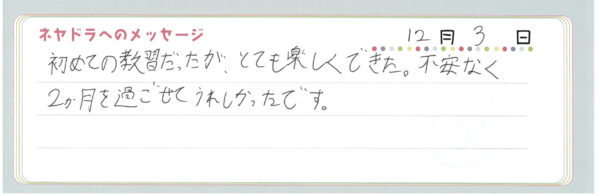 ネヤドラへのメッセージ
12月3日
初めての教習だったが、とても楽しくできた。不安なく
2か月を過ごせてうれしかったです。